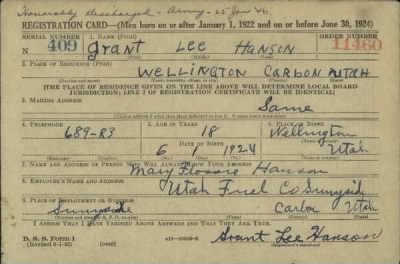 Honorably discharged - Army - 25 Jan '46.
REGISTRATION CARD—(Men born on or after January 1, 1922 and on or before June 30, 1924)
SERIAL NUMBER 1. NAME (Print) ORDER NUMBER
409 Grant Lee Hanson 11460
(First) (Middle) (Last)
2. PLACE OF RESIDENCE (Print)
WELLINGTON CARBON UTAH
[THE PLACE OF RESIDENCE GIVEN ON THE LINE ABOVE WILL DETERMINE LOCAL BOARD
JURISDICTION; LINE 2 OF REGISTRATION CERTIFICATE WILL BE IDENTICAL]
3. MAILING ADDRESS
Same
4. TELEPHONE 5. AGE IN YEARS 6. PLACE OF BIRTH
689-R3 18 Wellington
DATE OF BIRTH
6 1 1924 Utah
7. NAME AND ADDRESS OF PERSON WHO WILL ALWAYS KNOW YOUR ADDRESS
Mary Flossie Hanson
8. EMPLOYER'S NAME AND ADDRESS
Utah Fuel Co Sunnyside
9. PLACE OF EMPLOYMENT OR BUSINESS
Sunnyside Carbon Utah
I AFFIRM THAT I HAVE VERIFIED ABOVE ANSWERS AND THAT THEY ARE TRUE.
D. S. S. Form 1
(Revised 6-1-42) Grant Lee Hanson